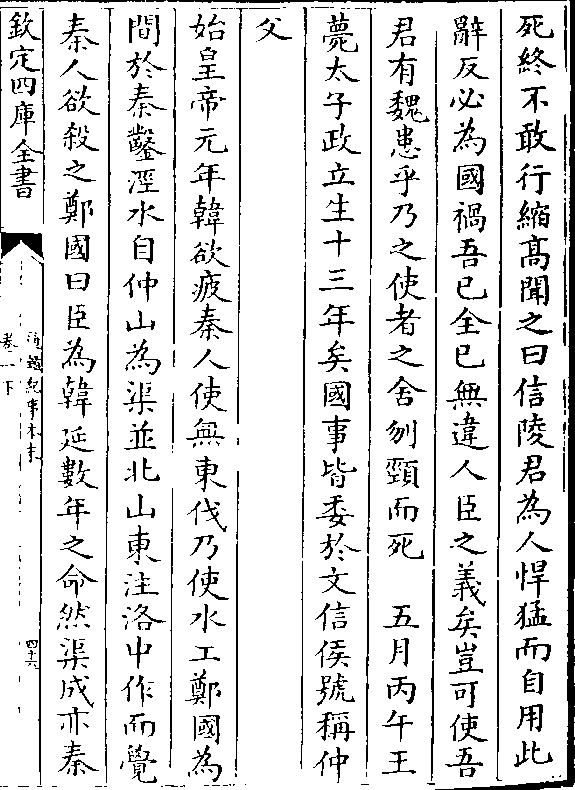 死終不敢行縮高聞之曰信陵君為人悍猛而自用此
辭反必為國禍吾已全已無違人臣之義矣豈可使吾
君有魏患乎乃之使者之舍刎頸而死　五月丙午王
薨太子政立生十三年矣國事皆委於文信侯號稱仲
父
始皇帝元年韓欲疲秦人使無東伐乃使水工鄭國為
間於秦鑿涇水自仲山為渠並北山東注洛中作而覺
秦人欲殺之鄭國曰臣為韓延數年之命然渠成亦秦
欽定四庫全書
通鑑紀事本末
卷一下
四十六